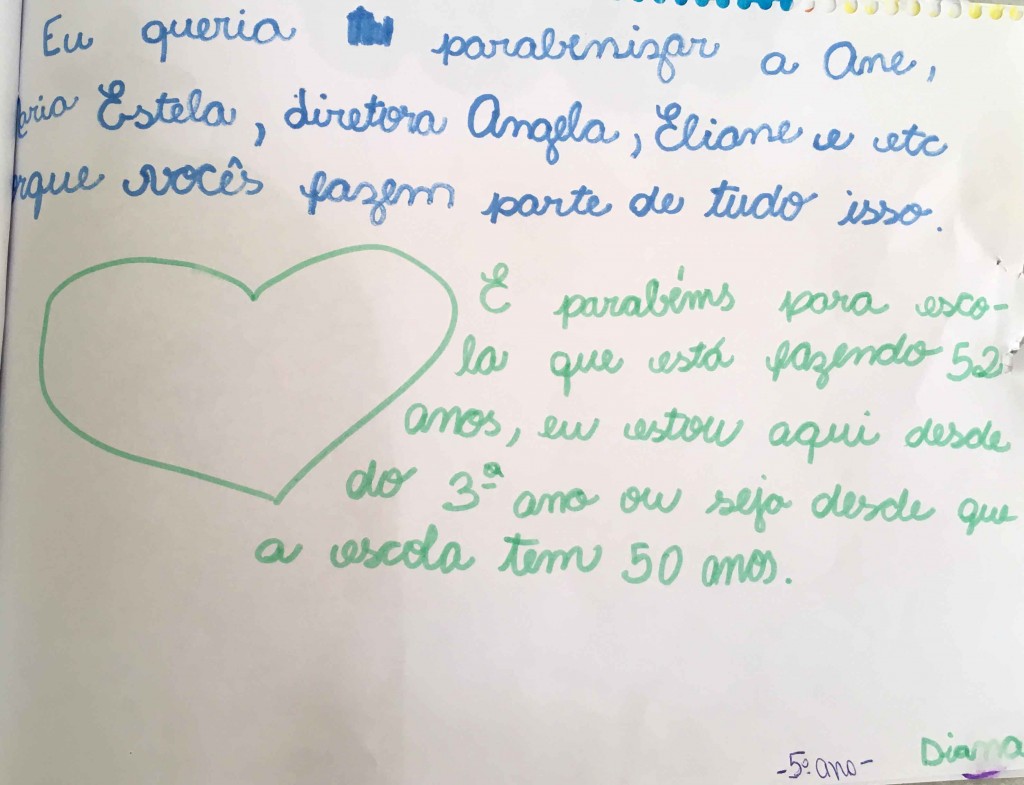 Eu queria parabenizar a Ane,
Estela, diretora Angela, Eliane e etc
rque vocês fazem parte de tudo isso.
E parabéms para esco-
la que está fazendo 52
anos, eu estou aqui desde
do 3ª ano ou seja desde que
a escola tem 50 anos.
Diana
-5º ano-